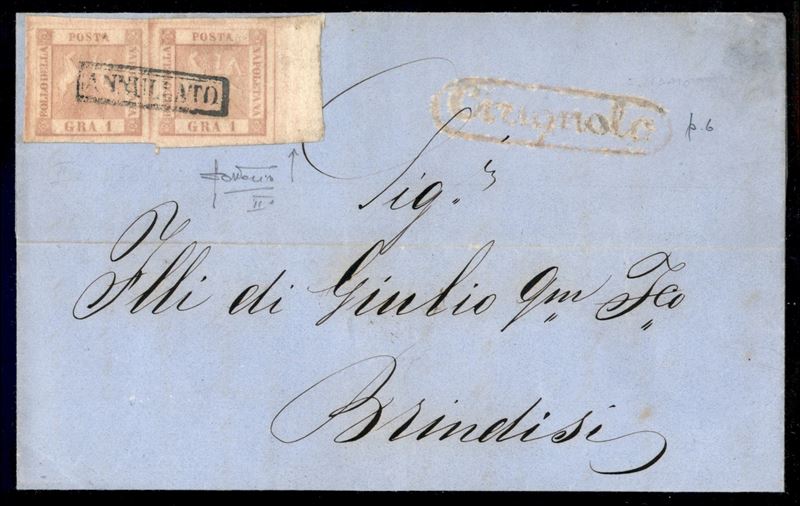 POSTA POSTA
BOLLO DELLA NAPOLETANA
GRA 1 GRA 1
ANNULLATO
Cirignola
p. 6
II
Sig.ri
Flli di Giulio qm Fco
Brindisi